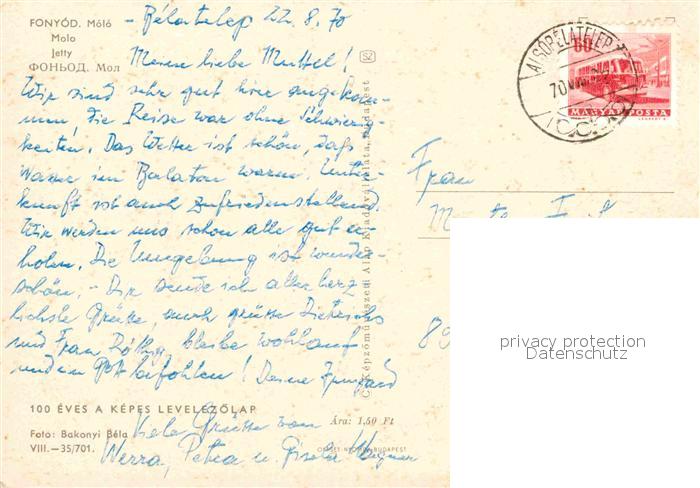 FONYÓD. Móló
Molo
Jetty
ФОНЬОД. Мол
- Bélatelep 22.8.70
Meine liebe Muttel!
Wir sind sehr gut hier angekom-
men die Reise war ohne Schwierig-
keiten. Das Wetter ist schön, das
Wasser im Balaton warm. Unter-
kunft ist auch zufriedenstellend.
Wir werden uns schon alle gut er-
holen. Die Umgebung ist wunder-
schön. - Dir sende ich aller herz-
lichste Grüsse, auch grüsse Dietrichs
und Frau bleibe wohlauf
und Gott befohlen! Deine
Viele Grüsse von
Werra, Petra u. Gisela Wagner
100 ÉVES A KÉPES LEVELEZŐLAP
Foto: Bakonyi Béla
VIII.—35/701.
Ára: 1,50 Ft
OFFSET-NYOMDA BUDAPEST
SZ
Képzőművészeti Alap Kiadóvállalata, Budapest
ALSÓBÉLATELEP
70
60
MAGYAR POSTA
Frau
89
privacy protection
Datenschutz